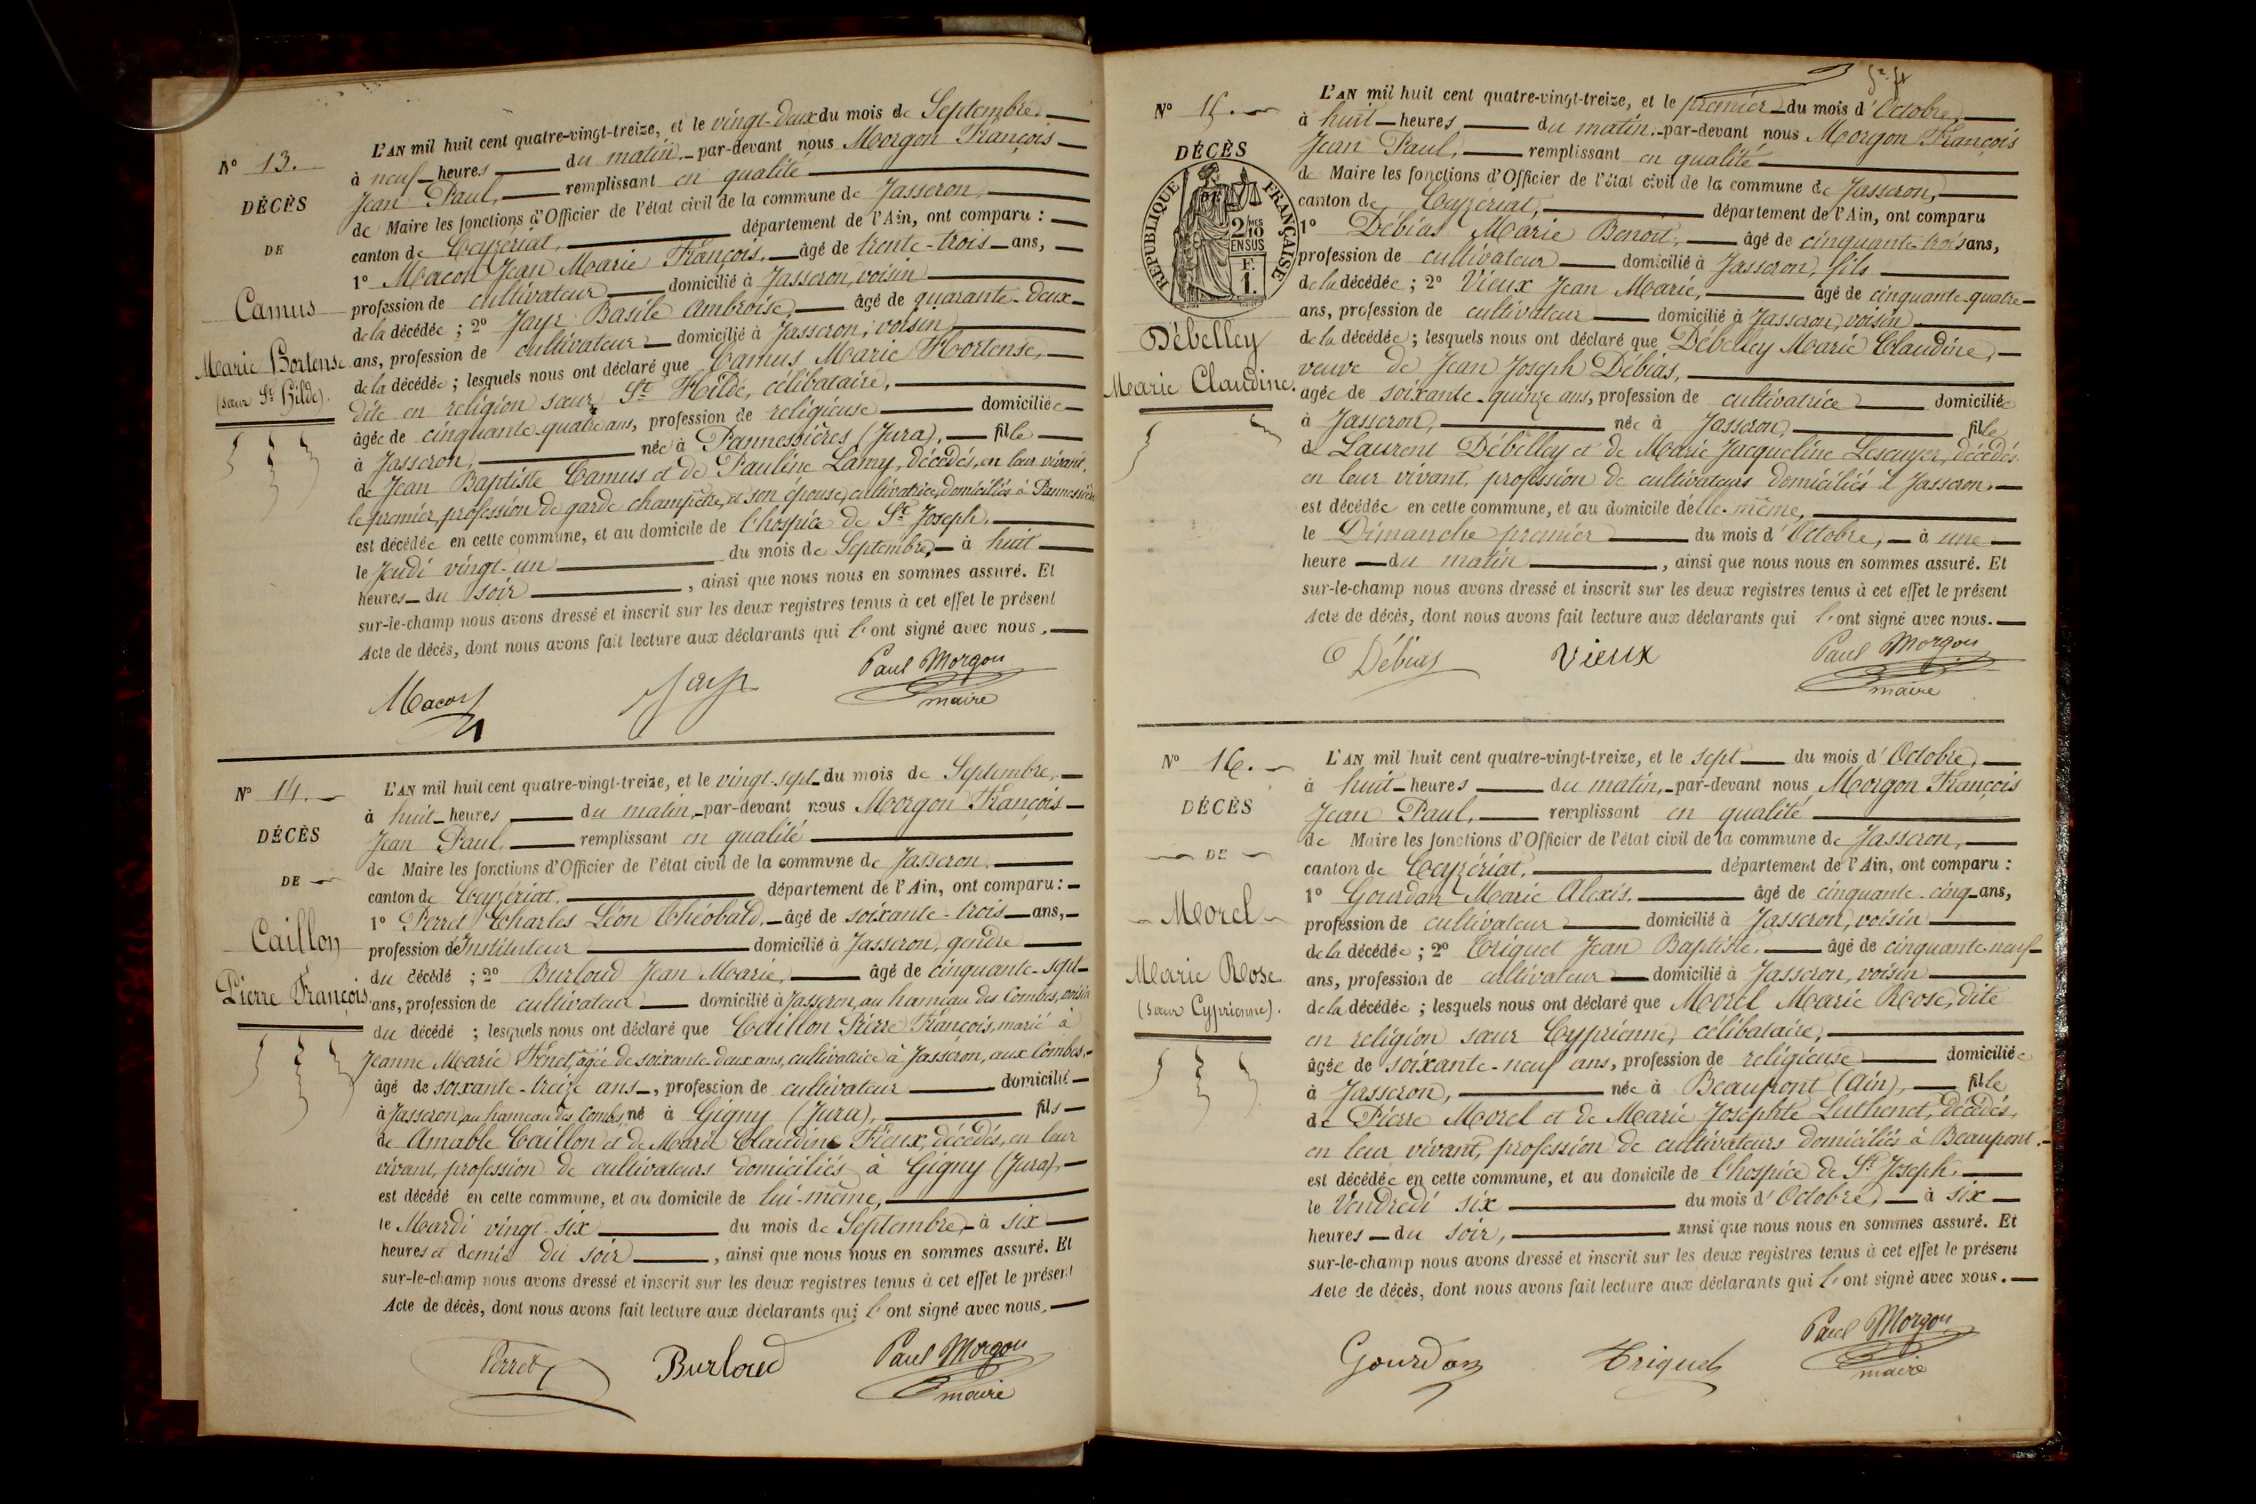 N° 13.
DÉCÈS
DE
Camus
Marie Hortense
(sœur St Hilde).
L'AN mil huit cent quatre-vingt-treize, et le vingt-deux du mois de Septembre,
à neuf heures du matin, par-devant nous Morgon François
Jean Paul, remplissant en qualité
de Maire les fonctions d'Officier de l'état civil de la commune de Jasseron,
canton de Ceyzériat, département de l'Ain, ont comparu :
1° Macon Jean Marie François, âgé de trente-trois ans,
profession de cultivateur domicilié à Jasseron, voisin
de la décédée ; 2° Jayr Basile Ambroise, âgé de quarante-deux
ans, profession de cultivateur domicilié à Jasseron, voisin
de la décédée ; lesquels nous ont déclaré que Camus Marie Hortense,
dite en religion sœur St Hilde, célibataire,
âgée de cinquante-quatre ans, profession de religieuse domiciliée
à Jasseron, née à Pannessières (Jura), fille
de Jean Baptiste Camus et de Pauline Lamy, décédés, en leur vivant,
le premier, profession de garde champêtre, et son épouse, cultivatrice, domiciliés à Pannessières
est décédée en cette commune, et au domicile de l'hospice de St Joseph,
le Jeudi vingt-un du mois de Septembre, à huit
heures du soir, ainsi que nous nous en sommes assuré. Et
sur-le-champ nous avons dressé et inscrit sur les deux registres tenus à cet effet le présent
Acte de décès, dont nous avons fait lecture aux déclarants qui l'ont signé avec nous.
Macon Jayr Paul Morgon
maire
N° 14.
DÉCÈS
DE
Caillon
Pierre François.
L'AN mil huit cent quatre-vingt-treize, et le vingt-sept du mois de Septembre,
à huit heures du matin, par-devant nous Morgon François
Jean Paul, remplissant en qualité
de Maire les fonctions d'Officier de l'état civil de la commune de Jasseron,
canton de Ceyzériat, département de l'Ain, ont comparu :
1° Perret Charles Léon Théobald, âgé de soixante-trois ans,
profession de Instituteur domicilié à Jasseron, gendre
du décédé ; 2° Burloud Jean Marie, âgé de cinquante-sept
ans, profession de cultivateur domicilié à Jasseron, au hameau des Combes, voisin
du décédé ; lesquels nous ont déclaré que Caillon Pierre François, marié à
Jeanne Marie Frénet, âgée de soixante-deux ans, cultivatrice à Jasseron, aux Combes,
âgé de soixante-treize ans, profession de cultivateur domicilié
à Jasseron, au hameau des Combes, né à Gigny (Jura), fils
de Amable Caillon et de Marie Claudine Frieux, décédés, en leur
vivant, profession de cultivateurs domiciliés à Gigny (Jura),
est décédé en cette commune, et au domicile de lui-même,
le Mardi vingt-six du mois de Septembre, à six
heures et demie du soir, ainsi que nous nous en sommes assuré. Et
sur-le-champ nous avons dressé et inscrit sur les deux registres tenus à cet effet le présent
Acte de décès, dont nous avons fait lecture aux déclarants qui l'ont signé avec nous.
Perret Burloud Paul Morgon
maire
N° 15.
DÉCÈS
RÉPUBLIQUE FRANÇAISE
2/10 EN SUS
F.
1.
Débelley
Marie Claudine.
L'AN mil huit cent quatre-vingt-treize, et le premier du mois d'Octobre,
à huit heures du matin, par-devant nous Morgon François
Jean Paul, remplissant en qualité
de Maire les fonctions d'Officier de l'état civil de la commune de Jasseron,
canton de Ceyzériat, département de l'Ain, ont comparu
1° Débias Marie Benoit, âgé de cinquante-trois ans,
profession de cultivateur domicilié à Jasseron, fils
de la décédée ; 2° Vieux Jean Marie, âgé de cinquante-quatre
ans, profession de cultivateur domicilié à Jasseron, voisin
de la décédée ; lesquels nous ont déclaré que Débelley Marie Claudine,
veuve de Jean Joseph Débias,
âgée de soixante-quinze ans, profession de cultivatrice domiciliée
à Jasseron, née à Jasseron, fille
de Laurent Débelley et de Marie Jacqueline Lescuyer, décédés,
en leur vivant, profession de cultivateurs domiciliés à Jasseron,
est décédée en cette commune, et au domicile d'elle-même,
le Dimanche premier du mois d'Octobre, à une
heure du matin, ainsi que nous nous en sommes assuré. Et
sur-le-champ nous avons dressé et inscrit sur les deux registres tenus à cet effet le présent
Acte de décès, dont nous avons fait lecture aux déclarants qui l'ont signé avec nous.
Débias Vieux Paul Morgon
maire
N° 16.
DÉCÈS
DE
Morel
Marie Rose
(sœur Cyprienne).
L'AN mil huit cent quatre-vingt-treize, et le sept du mois d'Octobre,
à huit heures du matin, par-devant nous Morgon François
Jean Paul, remplissant en qualité
de Maire les fonctions d'Officier de l'état civil de la commune de Jasseron,
canton de Ceyzériat, département de l'Ain, ont comparu :
1° Gourdan Marie Alexis, âgé de cinquante-cinq ans,
profession de cultivateur domicilié à Jasseron, voisin
de la décédée ; 2° Triquet Jean Baptiste, âgé de cinquante-neuf
ans, profession de cultivateur domicilié à Jasseron, voisin
de la décédée ; lesquels nous ont déclaré que Morel Marie Rose, dite
en religion sœur Cyprienne, célibataire,
âgée de soixante-neuf ans, profession de religieuse domiciliée
à Jasseron, née à Beaupont (Ain), fille
de Pierre Morel et de Marie Josephte Luthenet, décédés,
en leur vivant, profession de cultivateurs domiciliés à Beaupont,
est décédée en cette commune, et au domicile de l'hospice de St Joseph,
le Vendredi six du mois d'Octobre, à six
heures du soir, ainsi que nous nous en sommes assuré. Et
sur-le-champ nous avons dressé et inscrit sur les deux registres tenus à cet effet le présent
Acte de décès, dont nous avons fait lecture aux déclarants qui l'ont signé avec nous.
Gourdan Triquet Paul Morgon
maire